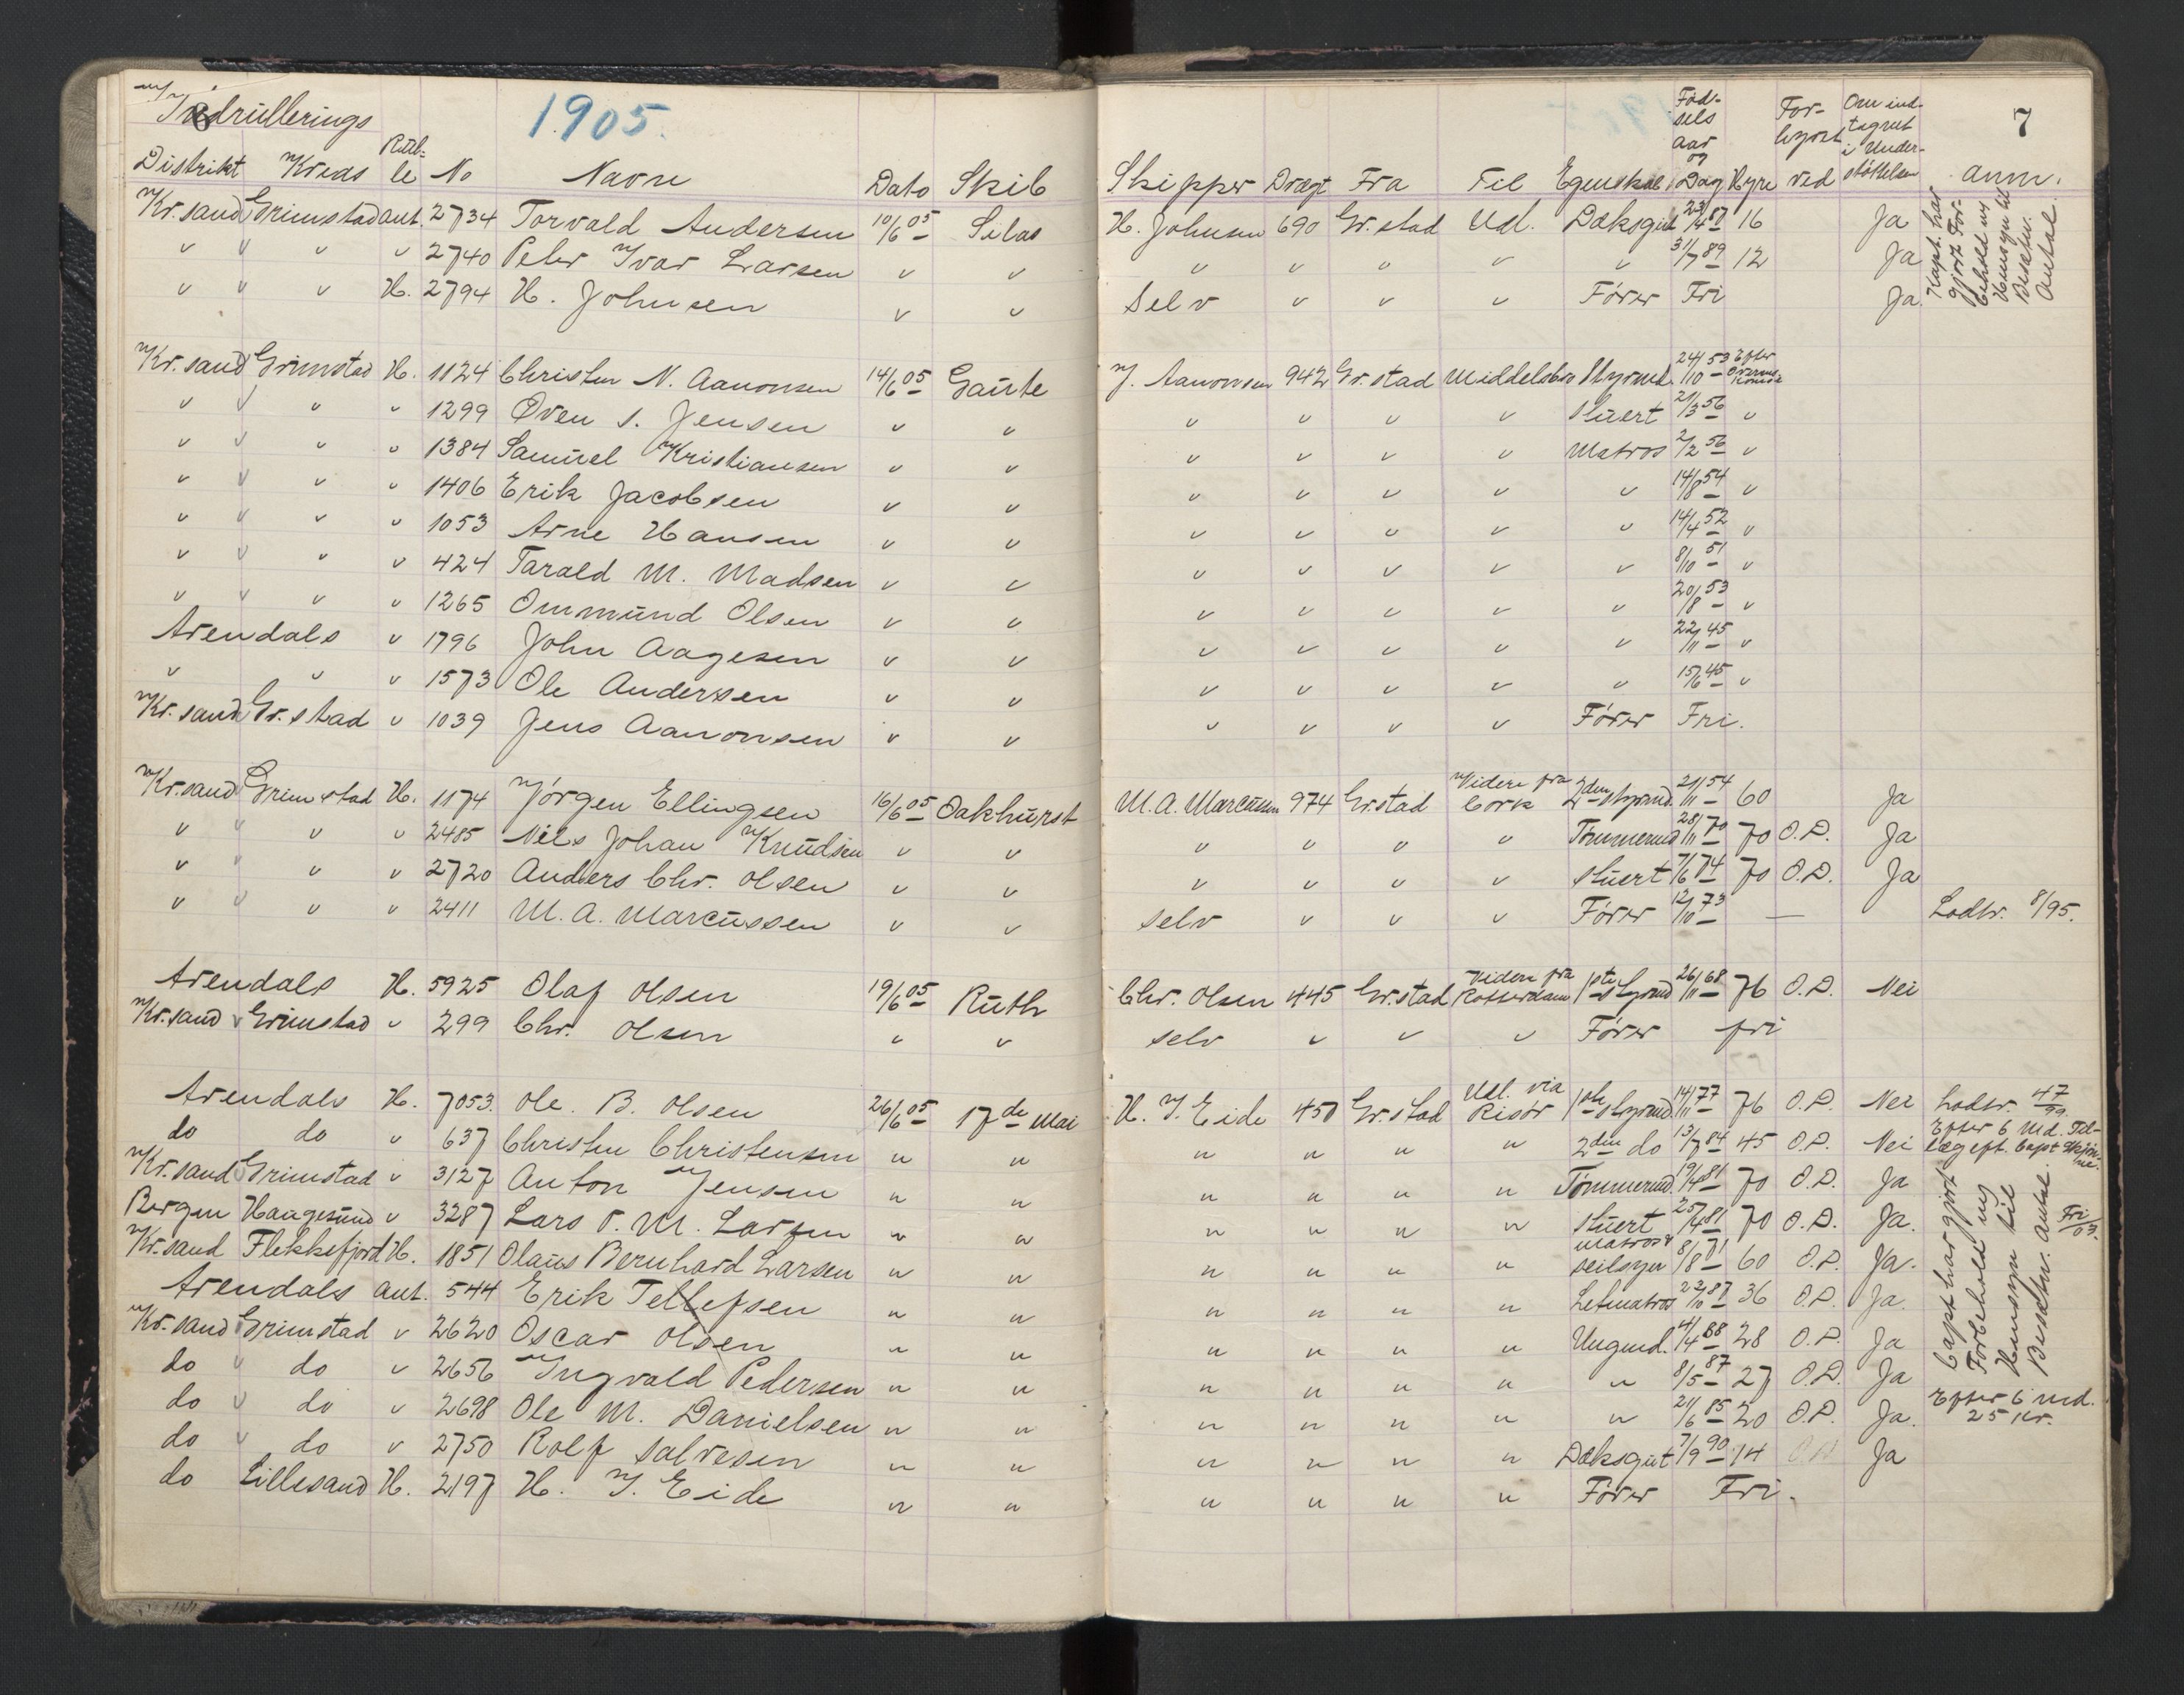 Indrullerings 1905.
Distrikt Kreds Rulle No Navn Dato Skib Skipper Drægt Fra Til Egenskab Fødselsaar og Dag Hyre Forhyret ved Om indtegnet i Understøttelsen Anm. 7
Kr.sand Grimstad ant. 2734 Torvald Andersen 10/6 05 Silas H. Johnsen 690 Gr.stad Udl. Dæksgut 23/4 87 16 Ja
v v v v 2740 Peter Ivar Larsen v v v v v v v 31/7 89 12 Ja
v v v H. 2794 H. Johnsen v v Selv v v v Fører Fri Ja
Kapt. har gjort Forbehold m Hensyn til Besætn. Antal.
Kr.sand Grimstad H. 1124 Christen N. Aanonsen 14/6 05 Gaute J. Aanonsen 942 Gr.stad Middelsbro Styrmd. 24/10 53 Efter Overenskomst
v v v v 1299 Oven S. Jensen v v v v v v Stuert 21/3 56 v
v v v v 1384 Samuel Kristiansen v v v v v v Matros 2/2 56 v
v v v v 1406 Erik Jacobsen v v v v v v v 14/8 54 v
v v v v 1053 Arne Hansen v v v v v v v 14/4 52 v
v v v v 424 Tarald M. Madsen v v v v v v v 8/10 51 v
v v v v 1265 Ommund Olsen v v v v v v v 20/8 53 v
Arendals v 1796 John Aagesen v v v v v v v 22/11 45 v
v v v 1573 Ole Andersen v v v v v v v 15/6 45 v
Kr.sand Gr.stad v 1039 Jens Aanonsen v v v v v v Fører Fri.
Kr.sand Grimstad H. 1174 Jørgen Ellingsen 16/6 05 Oakhurst M. A. Marcussen 974 Gr.stad Videre fra Cork 2den Styrmd. 21/11 54 60 Ja
v v v v 2485 Nils Johan Knudsen v v v v v v Tømmermd 28/11 70 70 O.D. Ja
v v v v 2720 Anders Chr. Olsen v v v v v v Stuert 7/6 74 70 O.D. Ja
v v v v 2411 M. A. Marcussen v v selv v v v Fører 12/10 73 — Lodtr. 8/95.
Arendals H. 5925 Olaf Olsen 19/6 05 Ruth Chr. Olsen 445 Gr.stad Videre fra Rotterdam 1ste Styrmd 26/11 68 76 O.D. Nei
Kr.sand v Grimstad v 299 Chr. Olsen v v selv v v v Fører fri
Arendals H. 7053. Ole. B. Olsen 26/6 05 17de Mai H. J. Eide 450 Gr.stad Udl. via Risør 1ste Styrmd 14/11 77 76 O.D. Nei Lodtr. 47/99.
do do v 637 Christen Christensen " " " " " " 2den do 13/7 84 45 O.D. Nei Efter 6 Md. Tillæg eft. Capt Skjønne.
Kr.sand Grimstad v 3127 Anton Jensen " " " " " " Tømmermd. 19/4 81 70 O.D. Ja
Bergen Haugesund v 3287 Lars O. M. Larsen " " " " " " Stuert 25/4 81 70 O.D. Ja. Fri/03.
Kr.sand Flekkefjord H. 1851 Olaus Bernhard Larsen " " " " " " Matros & seilsyer 8/8 71 60 O.D. Ja.
Arendals ant. 544 Erik Tellefsen " " " " " " Letmatros 22/10 87 36 O.D. Ja
Kr.sand Grimstad v 2620 Oscar Olsen " " " " " " Ungmd. 4/4 88 28 O.D. Ja
do v do v 2656 Ingvald Pedersen " " " " " " " 8/5 87 27 O.D. Ja
do v do v 2698 Ole M. Danielsen " " " " " " " 21/6 85 20 O.D. Ja. Efter 6 md. 25 Kr.
do v do v 2750 Rolf Salvesen " " " " " " Dæksgut 7/9 90 14 O.D. Ja
do Lillesand H. 2197 H. J. Eide " " " " " " Fører Fri.
Capt har gjort Forbehold m Hensyn til Besætn. Antal.